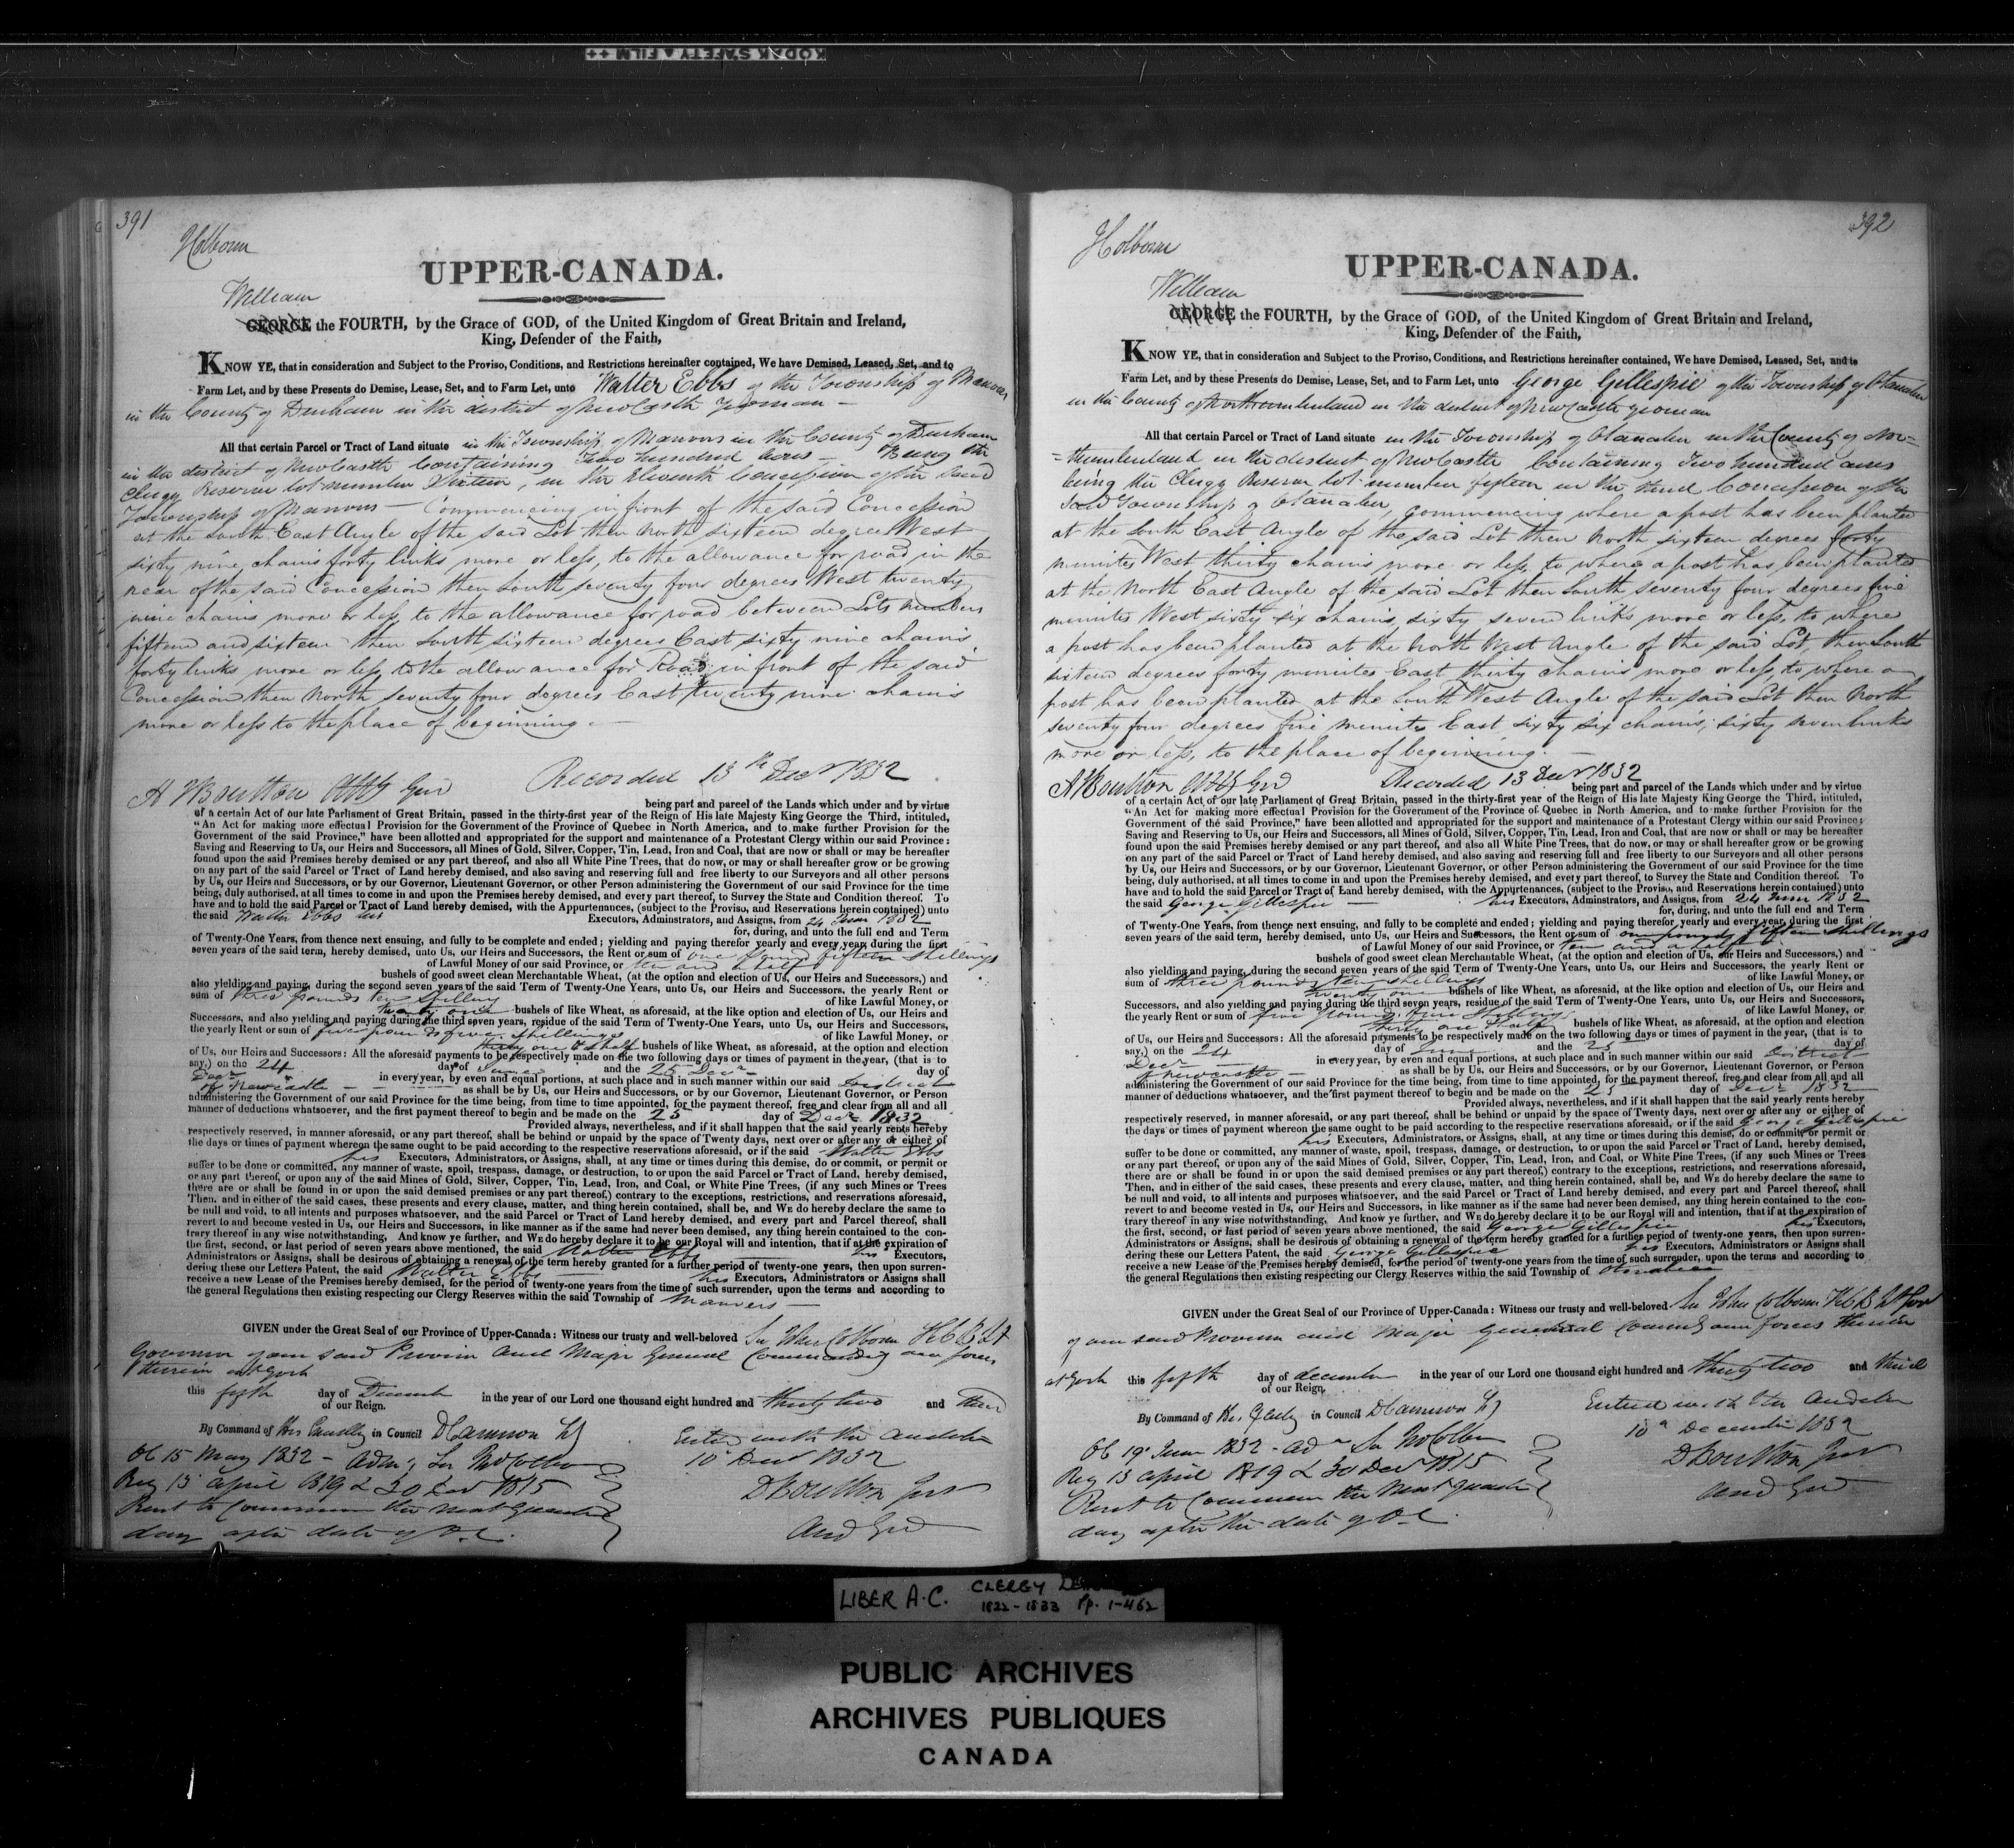 KODAK SAFETY FILM ++
391
UPPER-CANADA.
William
GEORGE the FOURTH, by the Grace of GOD, of the United Kingdom of Great Britain and Ireland,
King, Defender of the Faith,
KNOW YE, that in consideration and Subject to the Proviso, Conditions, and Restrictions hereinafter contained, We have Demised, Leased, Set, and to
Farm Let, and by these Presents do Demise, Lease, Set, and to Farm Let, unto Walter Ebbs of the Township of Manvers
in the County of Durham in the district of NewCastle Yeoman —
All that certain Parcel or Tract of Land situate in the Township of Manvers in the County of Durham
in the district of NewCastle Containing Two hundred Acres — Being the
Clergy Reserve lot number Sixteen, in the Eleventh Concession of the said
Township of Manvers — Commencing in front of the said Concession
at the South East Angle of the said Lot then North sixteen degrees West
sixty nine chains forty links more or less, to the allowance for road in the
rear of the said Concession then South seventy four degrees West twenty
nine chains more or less to the allowance for road between Lots numbers
fifteen and sixteen then South sixteen degrees East sixty nine chains
forty links more or less to the allowance for Road in front of the said
Concession then North seventy four degrees East twenty nine chains
more or less to the place of beginning. —
Recorded 13th Decr 1832
Boulton Atty Genl
being part and parcel of the Lands which under and by virtue
of a certain Act of our late Parliament of Great Britain, passed in the thirty-first year of the Reign of His late Majesty King George the Third, intituled,
"An Act for making more effectual Provision for the Government of the Province of Quebec in North America, and to make further Provision for the
Government of the said Province," have been allotted and appropriated for the support and maintenance of a Protestant Clergy within our said Province:
Saving and Reserving to Us, our Heirs and Successors, all Mines of Gold, Silver, Copper, Tin, Lead, Iron and Coal, that are now or shall or may be hereafter
found upon the said Premises hereby demised or any part thereof, and also all White Pine Trees, that do now, or may or shall hereafter grow or be growing
on any part of the said Parcel or Tract of Land hereby demised, and also saving and reserving full and free liberty to our Surveyors and all other persons
by Us, our Heirs and Successors, or by our Governor, Lieutenant Governor, or other Person administering the Government of our said Province for the time
being, duly authorised, at all times to come in and upon the Premises hereby demised, and every part thereof, to Survey the State and Condition thereof. To
have and to hold the said Parcel or Tract of Land hereby demised, with the Appurtenances, (subject to the Proviso, and Reservations herein contained) unto
the said Walter Ebbs his Executors, Adminstrators, and Assigns, from 24 June 1832
for, during, and unto the full end and Term
of Twenty-One Years, from thence next ensuing, and fully to be complete and ended; yielding and paying therefor yearly and every year, during the first
seven years of the said term, hereby demised, unto Us, our Heirs and Successors, the Rent or sum of one pound fifteen shillings
of Lawful Money of our said Province, or ten and a half
bushels of good sweet clean Merchantable Wheat, (at the option and election of Us, our Heirs and Successors,) and
also yielding and paying, during the second seven years of the said Term of Twenty-One Years, unto Us, our Heirs and Successors, the yearly Rent or
sum of three pounds ten Shillings of like Lawful Money, or
twenty one bushels of like Wheat, as aforesaid, at the like option and election of Us, our Heirs and
Successors, and also yielding and paying during the third seven years, residue of the said Term of Twenty-One Years, unto Us, our Heirs and Successors,
the yearly Rent or sum of five pounds five shillings of like Lawful Money, or
thirty one & a half bushels of like Wheat, as aforesaid, at the option and election
of Us, our Heirs and Successors: All the aforesaid payments to be respectively made on the two following days or times of payment in the year, (that is to
say,) on the 24 day of June and the 25 Decr day of
in every year, by even and equal portions, at such place and in such manner within our said District
of Newcastle — as shall be by Us, our Heirs and Successors, or by our Governor, Lieutenant Governor, or Person
administering the Government of our said Province for the time being, from time to time appointed, for the payment thereof, free and clear from all and all
manner of deductions whatsoever, and the first payment thereof to begin and be made on the 25 day of Decr 1832
Provided always, nevertheless, and if it shall happen that the said yearly rents hereby
respectively reserved, in manner aforesaid, or any part thereof, shall be behind or unpaid by the space of Twenty days, next over or after any or either of
the days or times of payment whereon the same ought to be paid according to the respective reservations aforesaid, or if the said Walter Ebbs
his Executors, Administrators, or Assigns, shall, at any time or times during this demise, do or commit, or permit or
suffer to be done or committed, any manner of waste, spoil, trespass, damage, or destruction, to or upon the said Parcel or Tract of Land, hereby demised,
or any part thereof, or upon any of the said Mines of Gold, Silver, Copper, Tin, Lead, Iron, and Coal, or White Pine Trees, (if any such Mines or Trees
there are or shall be found in or upon the said demised premises or any part thereof,) contrary to the exceptions, restrictions, and reservations aforesaid,
Then, and in either of the said cases, these presents and every clause, matter, and thing herein contained, shall be, and WE do hereby declare the same to
be null and void, to all intents and purposes whatsoever, and the said Parcel or Tract of Land hereby demised, and every part and Parcel thereof, shall
revert to and become vested in Us, our Heirs and Successors, in like manner as if the same had never been demised, any thing herein contained to the con-
trary thereof in any wise notwithstanding. And know ye further, and WE do hereby declare it to be our Royal will and intention, that if at the expiration of
the first, second, or last period of seven years above mentioned, the said Walter Ebbs his Executors,
Administrators or Assigns, shall be desirous of obtaining a renewal of the term hereby granted for a further period of twenty-one years, then upon surren-
dering these our Letters Patent, the said Walter Ebbs — his Executors, Administrators or Assigns shall
receive a new Lease of the Premises hereby demised, for the period of twenty-one years from the time of such surrender, upon the terms and according to
the general Regulations then existing respecting our Clergy Reserves within the said Township of Manvers —
GIVEN under the Great Seal of our Province of Upper-Canada: Witness our trusty and well-beloved Sir John Colborne K C B Lt
Governor of our said Province and Major General Commanding our forces
therein at York
this fifth day of December in the year of our Lord one thousand eight hundred and thirty two and third
of our Reign.
By Command of His Excellcy in Council D Cameron
OC 15 May 1832 -
Reg 13 April 1819 & 30 Decr 1815
Rent to Commence the next quarter
day after date of O.C.
Enterd with the Auditor
10 Decr 1832
D Boulton Junr
Aud Genl
392
UPPER-CANADA.
William
GEORGE the FOURTH, by the Grace of GOD, of the United Kingdom of Great Britain and Ireland,
King, Defender of the Faith,
KNOW YE, that in consideration and Subject to the Proviso, Conditions, and Restrictions hereinafter contained, We have Demised, Leased, Set, and to
Farm Let, and by these Presents do Demise, Lease, Set, and to Farm Let, unto George Gillespie of the Township of Otanabee
in the County of Northumberland in the district of NewCastle yeoman
All that certain Parcel or Tract of Land situate in the Township of Otanabee in the County of Nor=
=thumberland in the district of NewCastle Containing Two hundred acres
being the Clergy Reserve lot number fifteen in the third Concession of the
said Township of Otanabee, commencing where a post has been planted
at the South East Angle of the said Lot then North sixteen degrees forty
minutes West thirty chains more or less, to where a post has been planted
at the North East Angle of the said Lot then South seventy four degrees five
minutes West sixty six chains, sixty seven links more or less, to where
a post has been planted at the North West Angle of the said Lot, then South
sixteen degrees forty minutes East thirty chains more or less, to where a
post has been planted at the South West Angle of the said Lot then North
seventy four degrees five minutes East, sixty six chains, sixty seven links
more or less, to the place of beginning. —
Boulton Atty Genl Recorded 13 Decr 1832
being part and parcel of the Lands which under and by virtue
of a certain Act of our late Parliament of Great Britain, passed in the thirty-first year of the Reign of His late Majesty King George the Third, intituled,
"An Act for making more effectual Provision for the Government of the Province of Quebec in North America, and to make further Provision for the
Government of the said Province," have been allotted and appropriated for the support and maintenance of a Protestant Clergy within our said Province:
Saving and Reserving to Us, our Heirs and Successors, all Mines of Gold, Silver, Copper, Tin, Lead, Iron and Coal, that are now or shall or may be hereafter
found upon the said Premises hereby demised or any part thereof, and also all White Pine Trees, that do now, or may or shall hereafter grow or be growing
on any part of the said Parcel or Tract of Land hereby demised, and also saving and reserving full and free liberty to our Surveyors and all other persons
by Us, our Heirs and Successors, or by our Governor, Lieutenant Governor, or other Person administering the Government of our said Province for the time
being, duly authorised, at all times to come in and upon the Premises hereby demised, and every part thereof, to Survey the State and Condition thereof. To
have and to hold the said Parcel or Tract of Land hereby demised, with the Appurtenances, (subject to the Proviso, and Reservations herein contained) unto
the said George Gillespie — his Executors, Adminstrators, and Assigns, from 24 June 1832
for, during, and unto the full end and Term
of Twenty-One Years, from thence next ensuing, and fully to be complete and ended; yielding and paying therefor yearly and every year, during the first
seven years of the said term, hereby demised, unto Us, our Heirs and Successors, the Rent or sum of one pound, fifteen shillings
of Lawful Money of our said Province, or ten and a half
bushels of good sweet clean Merchantable Wheat, (at the option and election of Us, our Heirs and Successors,) and
also yielding and paying, during the second seven years of the said Term of Twenty-One Years, unto Us, our Heirs and Successors, the yearly Rent or
sum of three pounds ten shillings of like Lawful Money, or
twenty one bushels of like Wheat, as aforesaid, at the like option and election of Us, our Heirs and
Successors, and also yielding and paying during the third seven years, residue of the said Term of Twenty-One Years, unto Us, our Heirs and Successors,
the yearly Rent or sum of five pounds five Shillings of like Lawful Money, or
thirty one & half bushels of like Wheat, as aforesaid, at the option and election
of Us, our Heirs and Successors: All the aforesaid payments to be respectively made on the two following days or times of payment in the year, (that is to
say,) on the 24 day of June and the 25 day of
Decr in every year, by even and equal portions, at such place and in such manner within our said District
of Newcastle — as shall be by Us, our Heirs and Successors, or by our Governor, Lieutenant Governor, or Person
administering the Government of our said Province for the time being, from time to time appointed, for the payment thereof, free and clear from all and all
manner of deductions whatsoever, and the first payment thereof to begin and be made on the 25 day of Decr 1832
Provided always, nevertheless, and if it shall happen that the said yearly rents hereby
respectively reserved, in manner aforesaid, or any part thereof, shall be behind or unpaid by the space of Twenty days, next over or after any or either of
the days or times of payment whereon the same ought to be paid according to the respective reservations aforesaid, or if the said George Gillespie
his Executors, Administrators, or Assigns, shall, at any time or times during this demise, do or commit or permit or
suffer to be done or committed, any manner of waste, spoil, trespass, damage, or destruction, to or upon the said Parcel or Tract of Land, hereby demised,
or any part thereof, or upon any of the said Mines of Gold, Silver, Copper, Tin, Lead, Iron, and Coal, or White Pine Trees, (if any such Mines or Trees
there are or shall be found in or upon the said demised premises or any part thereof,) contrary to the exceptions, restrictions, and reservations aforesaid,
Then, and in either of the said cases, these presents and every clause, matter, and thing herein contained, shall be, and WE do hereby declare the same to
be null and void, to all intents and purposes whatsoever, and the said Parcel or Tract of Land hereby demised, and every part and Parcel thereof, shall
revert to and become vested in Us, our Heirs and Successors, in like manner as if the same had never been demised, any thing herein contained to the con-
trary thereof in any wise notwithstanding. And know ye further, and WE do hereby declare it to be our Royal will and intention, that if at the expiration of
the first, second, or last period of seven years above mentioned, the said George Gillespie his Executors,
Administrators or Assigns, shall be desirous of obtaining a renewal of the term hereby granted for a further period of twenty-one years, then upon surren-
dering these our Letters Patent, the said George Gillespie his Executors, Administrators or Assigns shall
receive a new Lease of the Premises hereby demised, for the period of twenty-one years from the time of such surrender, upon the terms and according to
the general Regulations then existing respecting our Clergy Reserves within the said Township of Otanabee
GIVEN under the Great Seal of our Province of Upper-Canada: Witness our trusty and well-beloved Sir John Colborne K C B Lt Gov
of our said Province and Major General Commandg our forces therein
at York this fifth day of december in the year of our Lord one thousand eight hundred and thirty two and third
of our Reign.
By Command of in Council D Cameron
OC 19 June 1832 -
Reg 13 April 1819 & 30 Decr 1815
Rent to Commence the next quarter
day after the date of O.C.
Entered with the Auditor
10 December 1832
D Boulton Junr
Aud Genl
LIBER A.C. CLERGY
1822-1833 Pp. 1-462
PUBLIC ARCHIVES
ARCHIVES PUBLIQUES
CANADA